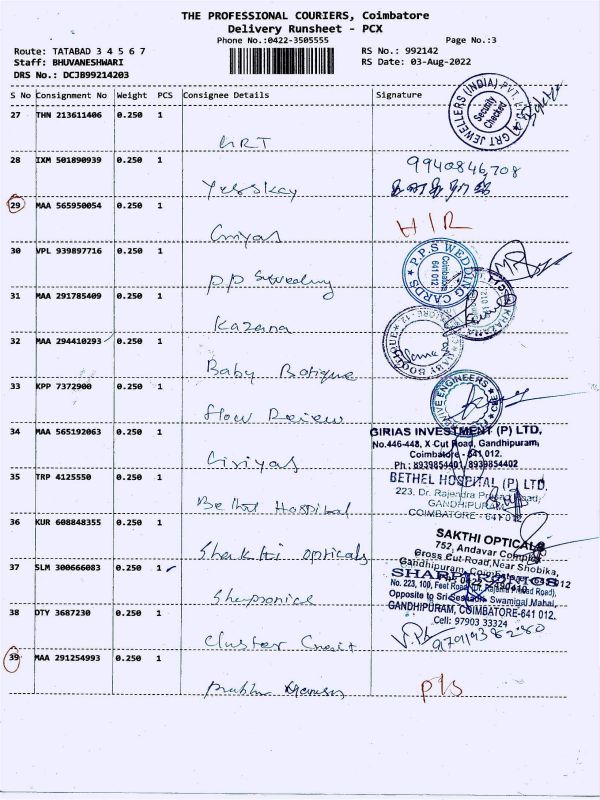 THE PROFESSIONAL COURIERS, Coimbatore
Delivery Runsheet - PCX
Phone No.:0422-3505555 Page No.:3
Route: TATABAD 3 4 5 6 7 RS No.: 992142
Staff: BHUVANESHWARI RS Date: 03-Aug-2022
DRS No.: DCJB99214203
S No Consignment No Weight PCS Consignee Details Signature
27 THN 213611406 0.250 1
GRT
GRT JEWELLERS (INDIA) PVT.
Security Checked
28 IXM 501890939 0.250 1
9940846708
29 MAA 565950054 0.250 1
30 VPL 939897716 0.250 1
PP Wedding
P.P.S WEDDING CARDS
Coimbatore
641 012
31 MAA 291785409 0.250 1
Kazana
KHAZANA
32 MAA 294410293 0.250 1
Baby Botique
BABY BOUTIQUE
33 KPP 7372900 0.250 1
Flow Review
ENGINEERS
34 MAA 565192063 0.250 1
Giriyas
GIRIAS INVESTMENT (P) LTD,
No.446-448, X-Cut Road, Gandhipuram,
Coimbatore - 641 012.
Ph : 8939854401, 8939854402
35 TRP 4125550 0.250 1
Bethel Hospital
BETHEL HOSPITAL (P) LTD.
223, Dr. Rajendra Prasad Road,
GANDHIPURAM
COIMBATORE - 641 012
36 KUR 608848355 0.250 1
Shakthi opticals
SAKTHI OPTICALS
752, Andavar Complex
Cross Cut Road, Near Shobika,
Gandhipuram, Coimbatore
37 SLM 300666083 0.250 1
Sharponics
No. 223, 100, Feet Road (Dr. Rajendra Prasad Road),
Opposite to Sri Swamigal Mahal,
GANDHIPURAM, COIMBATORE-641 012.
Cell: 97903 33324
38 DTY 3687230 0.250 1
Cluster
39 MAA 291254993 0.250 1
Prabhu